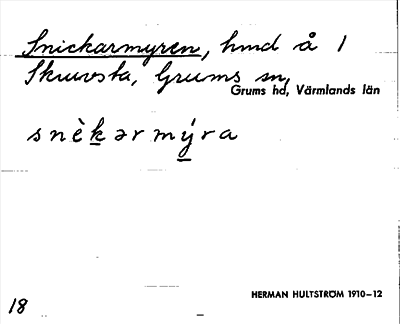 Snickarmyren, hmd å 1
Skruvsta, Grums sn,
Grums hd, Värmlands län
snèkərmýra
HERMAN HULTSTRÖM 1910-12
18